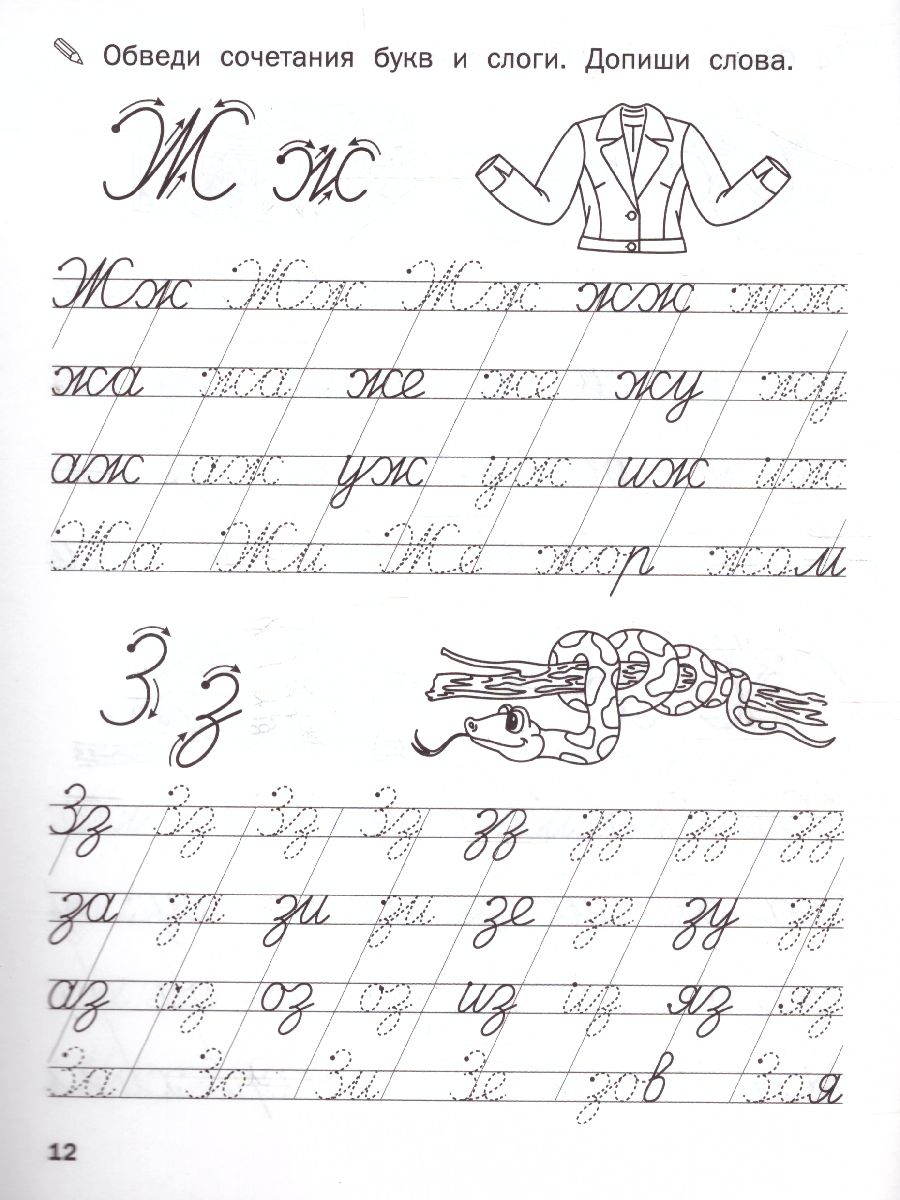 Обведи сочетания букв и слоги. Допиши слова.
Ж ж
Жж Жж Жж жж жж
жа жа же же жу жу
аж аж уж уж иж иж
Жа Жи Же жар жом
З з
Зз Зз Зз Зз зз зз зз зз
за за зи зи зе зе зу зу
аз аз оз оз из из яз яз
За Зо Зи Зе зов Зоя
12